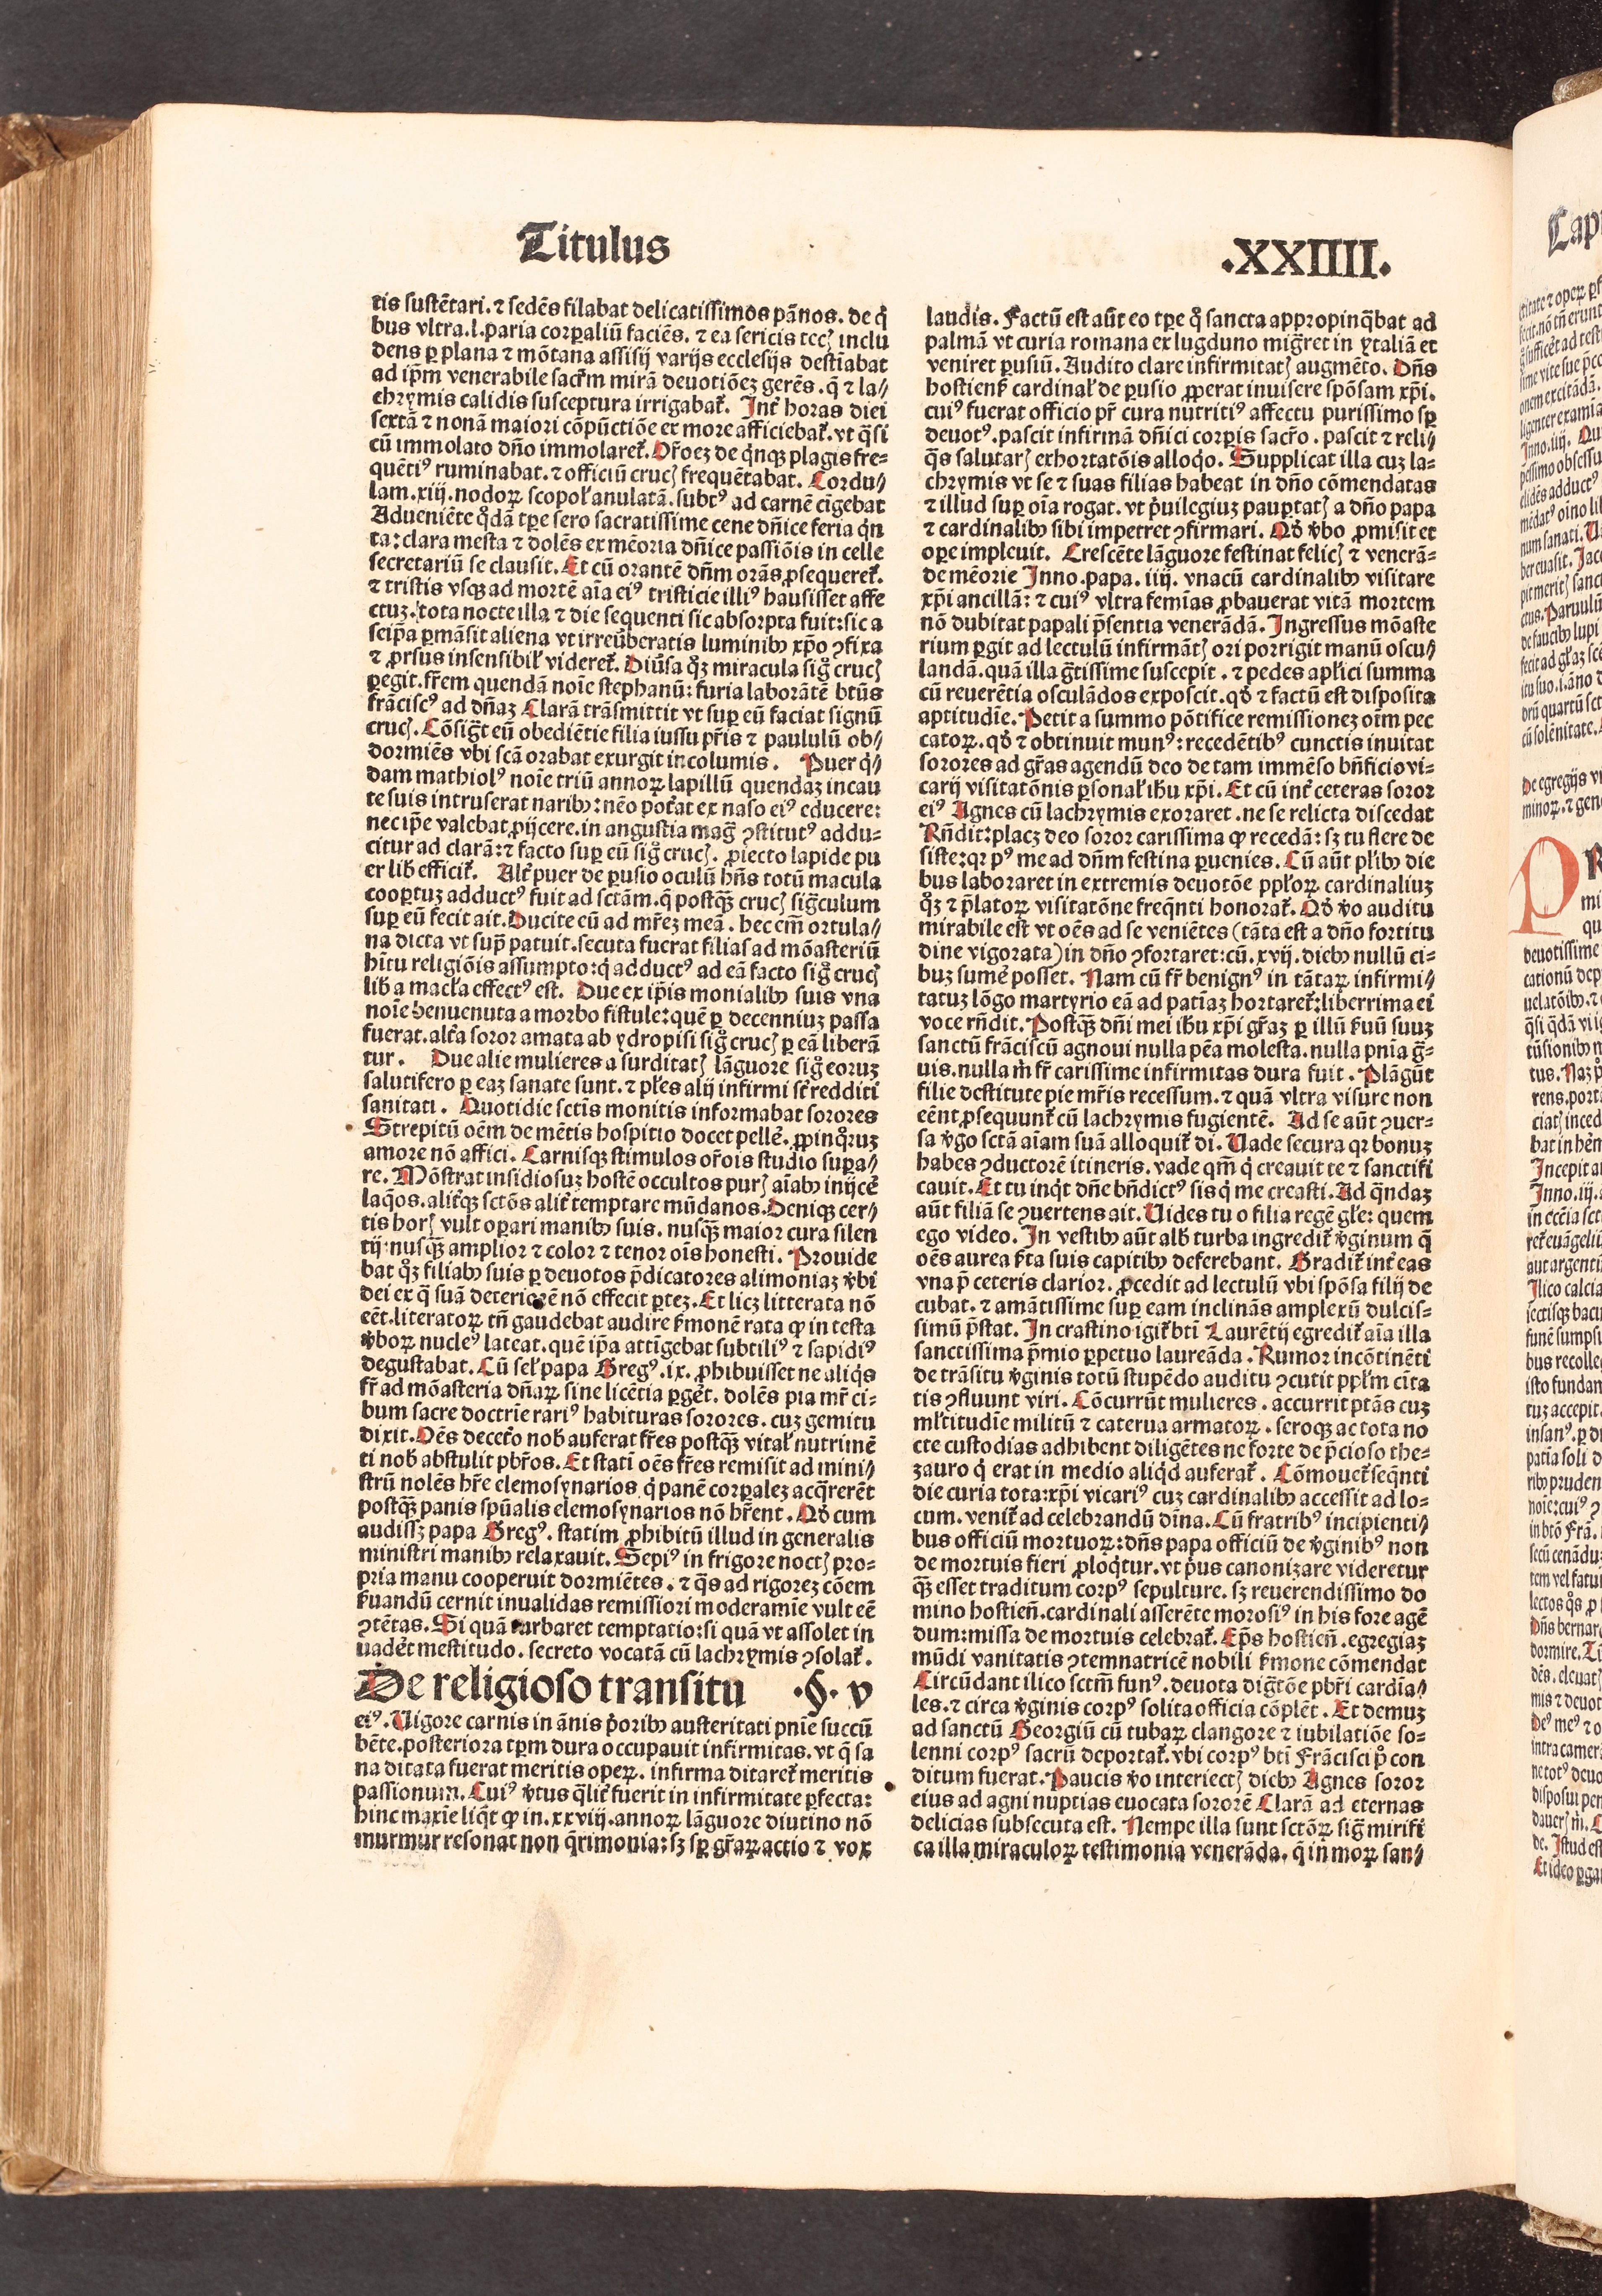 Titulus
.XXIIII.
tis sustētari. ⁊ sedēs filabat delicatissimos pānos. de q̇
bus vltra .l. paria corꝑaliū faciēs. ⁊ ea sericis tecꝭ inclu
dens ꝑ plana ⁊ mōtana assisij varijs ecclesijs destīabat
ad ip̄m venerabile sacrm̄ mirā deuotiōeꝫ gerēs. q̄ ⁊ la⸗
chrymis calidis susceptura irrigabat᷑. Int̄ horas diei
sextā ⁊ nonā maiori cōpūctiōe ex more afficiebat᷑. vt q̄si
cū immolato dn̄o immolaret᷑. Or̄oeꝫ de q̇nqꝫ plagis fre⸗
quētiꝰ ruminabat. ⁊ officiū crucꝭ frequētabat. Cordu⸗
lam .xiij. nodoꝝ scopoł anulatā. subtꝰ ad carnē cīgebat
Adueniēte q̊dā tp̄e sero sacratissime cene dn̄ice feria q̇n
ta: clara mesta ⁊ dolēs ex mēoria dn̄ice passiōis in celle
secretariū se clausit. Et cū orantē dn̄m orās ꝓsequeret᷑.
⁊ tristis vsqꝫ ad mortē aīa eiꝰ tristicie illiꝰ hausisset affe
ctuꝫ. tota nocte illa ⁊ die sequenti sic absorpta fuit: sic a
seip̄a ꝑmāsit aliena vt irreūberatis luminibꝫ xp̄o ꝯfixa
⁊ ꝓrsus insensibił videret᷑. Diūsa q̊ꝫ miracula sig̊ crucꝭ
ꝑegit. fr̄em quendā noīe stephanū: furia laborātē btūs
frāciscꝰ ad dn̄aꝫ Clarā trāsmittit vt suꝑ eū faciat signū
crucꝭ. Cōsig̅t eū obediētie filia iussu pr̄is ⁊ paululū ob⸗
dormiēs vbi scā orabat exurgit incolumis. Puer q̇⸗
dam mathiolꝰ noīe triū annoꝝ lapillū quendaꝫ incau
te suis intruserat naribꝫ: nēo pot̄at ex naso eiꝰ educere:
nec ip̄e valebat ꝓijcere. in angustia mag̅ ꝯstitutꝰ addu⸗
citur ad clarā: ⁊ facto suꝑ eū sig̊ crucꝭ. ꝓiecto lapide pu
er lib̄ efficit᷑. Alt̄ puer de ꝑusio oculū hn̄s totū macula
cooptuꝫ adductꝰ fuit ad sctām. q̄ postqꝫ crucꝭ sig̅culum
suꝑ eū fecit ait. Ducite eū ad mr̄eꝫ meā. hec em̄ ortula⸗
na dicta vt supͣ patuit. secuta fuerat filias ad mōasteriū
hītu religiōis assumpto: q̇ adductꝰ ad eā facto sig̊ crucꝭ
lib̄ a macła effectꝰ est. Due ex ip̄is monialibꝫ suis vna
noīe benuenuta a morbo fistule: quē ꝑ decenniuꝫ passa
fuerat. alt̄a soror amata ab ydropisi sig̊ crucꝭ ꝑ eā liberā
tur. Due alie mulieres a surditatꝭ lāguore sig̊ eoruꝫ
salutifero ꝑ eaꝫ sanate sunt. ⁊ płes alij infirmi st̄ redditi
sanitati. Quotidie sctīs monitis informabat sorores
Strepitū oēm de mētis hospitio docet pellē. ꝓpinq̊ruꝫ
amore nō affici. Carnisqꝫ stimulos or̄ois studio supa⸗
re. Mōstrat insidiosuꝫ hostē occultos purꝭ aīabꝫ inijcē
laq̄os. alit̄qꝫ sctōs alit̄ temptare mūdanos. Deniqꝫ cer⸗
tis horꝭ vult oꝑari manibꝫ suis. nusqꝫ maior cura silen
tij: nusqꝫ amplior ⁊ color ⁊ tenor oīs honesti. Prouide
bat q̊ꝫ filiabꝫ suis ꝑ deuotos p̄dicatores alimoniaꝫ v̄bi
dei ex q̄ suā nō effecit ꝑteꝫ. Et licꝫ litterata nō
eēt. literatoꝝ tn̄ gaudebat audire s̄monē rata ꝙ in testa
v̄boꝝ nucleꝰ lateat. quē ip̄a attīgebat subtiliꝰ ⁊ sapidiꝰ
degustabat. Cū seł papa Gregꝰ .ix. ꝓhibuisset ne aliq̇s
fr̄ ad mōasteria dn̄aꝝ sine licētia ꝑgēt. dolēs pia mr̄ ci⸗
bum sacre doctrīe rariꝰ habituras sorores. cuꝫ gemitu
dixit. Oēs decet̄o nob̄ auferat fr̄es postqꝫ vitał nutrimē
ti nob̄ abstulit pb̄ros. Et stati oēs fr̄es remisit ad mini⸗
strū nolēs hr̄e elemosynarios q̇ panē corꝑaleꝫ acq̇rerēt
postqꝫ panis spūalis elemosynarios nō hr̄ent. Qḋ cum
audissꝫ papa Gregꝰ. statim ꝓhibitū illud in generalis
ministri manibꝫ relaxauit. Sepiꝰ in frigore noctꝭ pro⸗
pria manu cooperuit dormiētes. ⁊ q̄s ad rigoreꝫ cōem
s̄uandū cernit inualidas remissiori moderamīe vult eē
ꝯtētas. Si quā turbaret temptatio: si quā vt assolet in
uadēt mestitudo. secreto vocatā cū lachrymis ꝯsolat᷑.
De religioso transitu .§. v
eiꝰ. Uigore carnis in ānis p̄oribꝫ austeritati pnīe succū
bēte. posteriora tꝑm dura occupauit infirmitas. vt q̄ sa
na ditata fuerat meritis oꝑeꝝ. infirma ditaret᷑ meritis
passionum. Cuiꝰ v̄tus q̄lit̄ fuerit in infirmitate ꝑfecta:
hinc maxīe liq̇t ꝙ in .xxviij. annoꝝ lāguore diutino nō
murmur resonat non q̄rimonia: sꝫ sꝑ gr̄aꝝ actio ⁊ vox
laudis. Factū est aūt eo tp̄e q̊ sancta appropinq̄bat ad
palmā vt curia romana ex lugduno migr̄et in ytaliā et
veniret ꝑusiū. Audito clare infirmitatꝭ augmēto. Dn̄s
hostienẜ cardinał de ꝑusio ꝓꝑerat inuisere spōsam xp̄i.
cuiꝰ fuerat officio pr̄ cura nutritiꝰ affectu purissimo sꝑ
deuotꝰ. pascit infirmā dn̄ici corꝑis sacr̄o. pascit ⁊ reli⸗
q̄s salutarꝭ exhortatōis alloq̇o. Supplicat illa cuꝫ la⸗
chrymis vt se ⁊ suas filias habeat in dn̄o cōmendatas
⁊ illud suꝑ oīa rogat. vt p̄uilegiuꝫ pauꝑtatꝭ a dn̄o papa
⁊ cardinalibꝫ sibi impetret ꝯfirmari. Qḋ v̄bo ꝓmisit et
oꝑe impleuit. Crescēte lāguore festinat felicꝭ ⁊ venerā⸗
de mēorie Inno. papa .iiij. vnacū cardinalibꝫ visitare
xp̄i ancillā: ⁊ cuiꝰ vltra femīas ꝓbauerat vitā mortem
nō dubitat papali p̄sentia venerādā. Ingressus mōaste
rium ꝑgit ad lectulū infirmātꝭ ori porrigit manū oscu⸗
landā. quā illa gr̄tissime suscepit. ⁊ pedes apłici summa
cū reuerētia osculādos exposcit. qḋ ⁊ factū est disposita
aptitudīe. Petit a summo pōtifice remissioneꝫ oīm pec
catoꝝ. qḋ ⁊ obtinuit munꝰ: recedētibꝰ cunctis inuitat
sorores ad gr̄as agendū deo de tam immēso bn̄ficio vi⸗
carij visitatōnis ꝑsonał ihū xp̄i. Et cū int̄ ceteras soror
eiꝰ Agnes cū lachrymis exoraret. ne se relicta discedat
Rn̄dit: placꝫ deo soror carissima ꝙ recedā: sꝫ tu flere de
siste: qꝛ pꝰ me ad dn̄m festina ꝑuenies. Cū aūt płibꝫ die
bus laboraret in extremis deuotōe ppłoꝝ cardinaliuꝫ
q̊ꝫ ⁊ p̄latoꝝ visitatōne freq̄nti honorat᷑. Qḋ v̄o auditu
mirabile est vt oēs ad se veniētes (tāta est a dn̄o fortitu
dine vigorata) in dn̄o ꝯfortaret: cū .xvij. diebꝫ nullū ci⸗
buꝫ sumē posset. Nam cū fr̄ benignꝰ in tātaꝝ infirmi⸗
tatuꝫ lōgo martyrio eā ad patiāꝫ hortaret᷑: liberrima ei
voce rn̄dit. Postqꝫ dn̄i mei ihū xp̄i gr̄aꝫ ꝑ illū s̄uū suuꝫ
sanctū frāciscū agnoui nulla pēa molesta. nulla pnīa g̅⸗
uis. nulla m̄ fr̄ carissime infirmitas dura fuit. Plāgūt
filie destitute pie mr̄is recessum. ⁊ quā vltra visure non
eēnt ꝓsequunt᷑ cū lachrymis fugientē. Ad se aūt ꝯuer⸗
sa v̄go sctā aīam suā alloquit᷑ di. Uade secura qꝛ bonuꝫ
habes ꝯductorē itineris. vade qm̄ q̇ creauit te ⁊ sanctifi
cauit. Et tu inq̇t dn̄e bn̄dictꝰ sis q̇ me creasti. Ad q̄ndaꝫ
aūt filiā se ꝯuertens ait. Uides tu o filia regē głe: quem
ego video. In vestibꝫ aūt alb̄ turba ingredit᷑ v̄ginum q̄
oēs aurea s̄ta suis capitibꝫ deferebant. Gradit᷑ int̄ eas
vna p̄ ceteris clarior. ꝓcedit ad lectulū vbi spōsa filij de
cubat. ⁊ amātissime suꝑ eam inclināns amplexū dulcis⸗
simū p̄stat. In crastino igit᷑ btī Laurētij egredit᷑ aīa illa
sanctissima p̄mio ꝑpetuo laureāda. Rumor incōtinēti
de trāsitu v̄ginis totū stupēdo auditu ꝯcutit ppłm cūta
tis ꝯfluunt viri. Cōcurrūt mulieres. accurrit ptās cuꝫ
młtitudīe militū ⁊ caterua armatoꝝ. seroqꝫ ac tota no
cte custodias adhibent diligētes ne forte de p̄cioso the⸗
zauro q̇ erat in medio aliq̇d auferat᷑. Cōmouet᷑ seq̄nti
die curia tota: xp̄i vicariꝰ cuꝫ cardinalibꝫ accessit ad lo⸗
cum. venit᷑ ad celebrandū dīna. Cū fratribꝰ incipienti⸗
bus officiū mortuoꝝ: dn̄s papa officiū de v̄ginibꝰ non
de mortuis fieri ꝓloq̇tur. vt p̄us canonizare videretur
qꝫ esset traditum corpꝰ sepulture. sꝫ reuerendissimo do
mino hostien̄. cardinali asserēte morosiꝰ in his fore agē
dum: missa de mortuis celebrat᷑. Ep̄s hostien̄. egregiaꝫ
mūdi vanitatis ꝯtemnatricē nobili s̄mone cōmendat
Circūdant ilico sctm̄ funꝰ. deuota dig̅tōe pb̄ri cardīa⸗
les. ⁊ circa v̄ginis corpꝰ solita officia cōplēt. Et demuꝫ
ad sanctū Georgiū cū tubaꝝ clangore ⁊ iubilatiōe so⸗
lenni corpꝰ sacrū deportat᷑. vbi corpꝰ btī Frācisci p̊ con
ditum fuerat. Paucis v̄o interiectꝭ diebꝫ Agnes soror
eius ad agni nuptias euocata sororē Clarā ad eternas
delicias subsecuta est. Nempe illa sunt sctōꝝ sig̅ mirifi
ca illa miraculoꝝ testimonia venerāda. q̄ in moꝝ san⸗